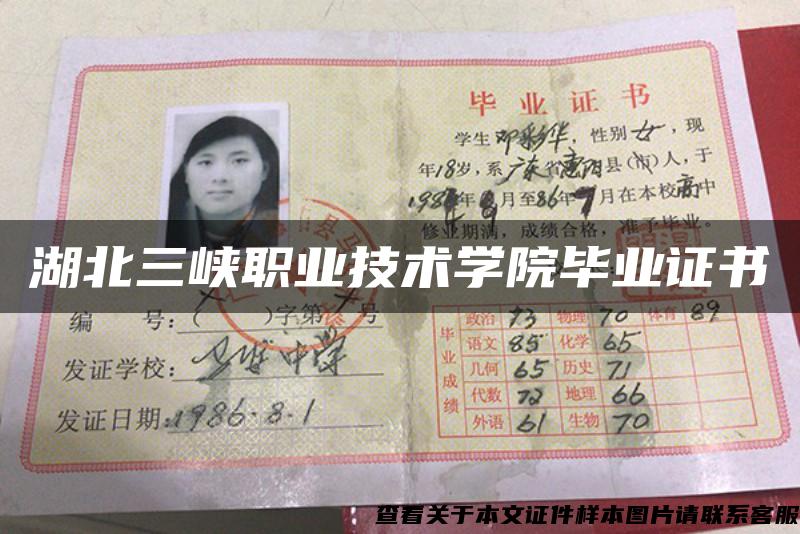 毕业证书
学生邓彩华,性别女,现
年18岁,系广东省惠阳县(市)人,于
月至86年7月在本校高中
修业期满,成绩合格,准予毕业。
湖北三峡职业技术学院毕业证书
编 号:( )字第 号
发证学校: 中学
发证日期:1986.8.1
毕业成绩
政治 73 物理 70 体育 89
语文 85 化学 65
几何 65 历史 71
代数 72 地理 66
外语 61 生物 70
查看关于本文证件样本图片请联系客服